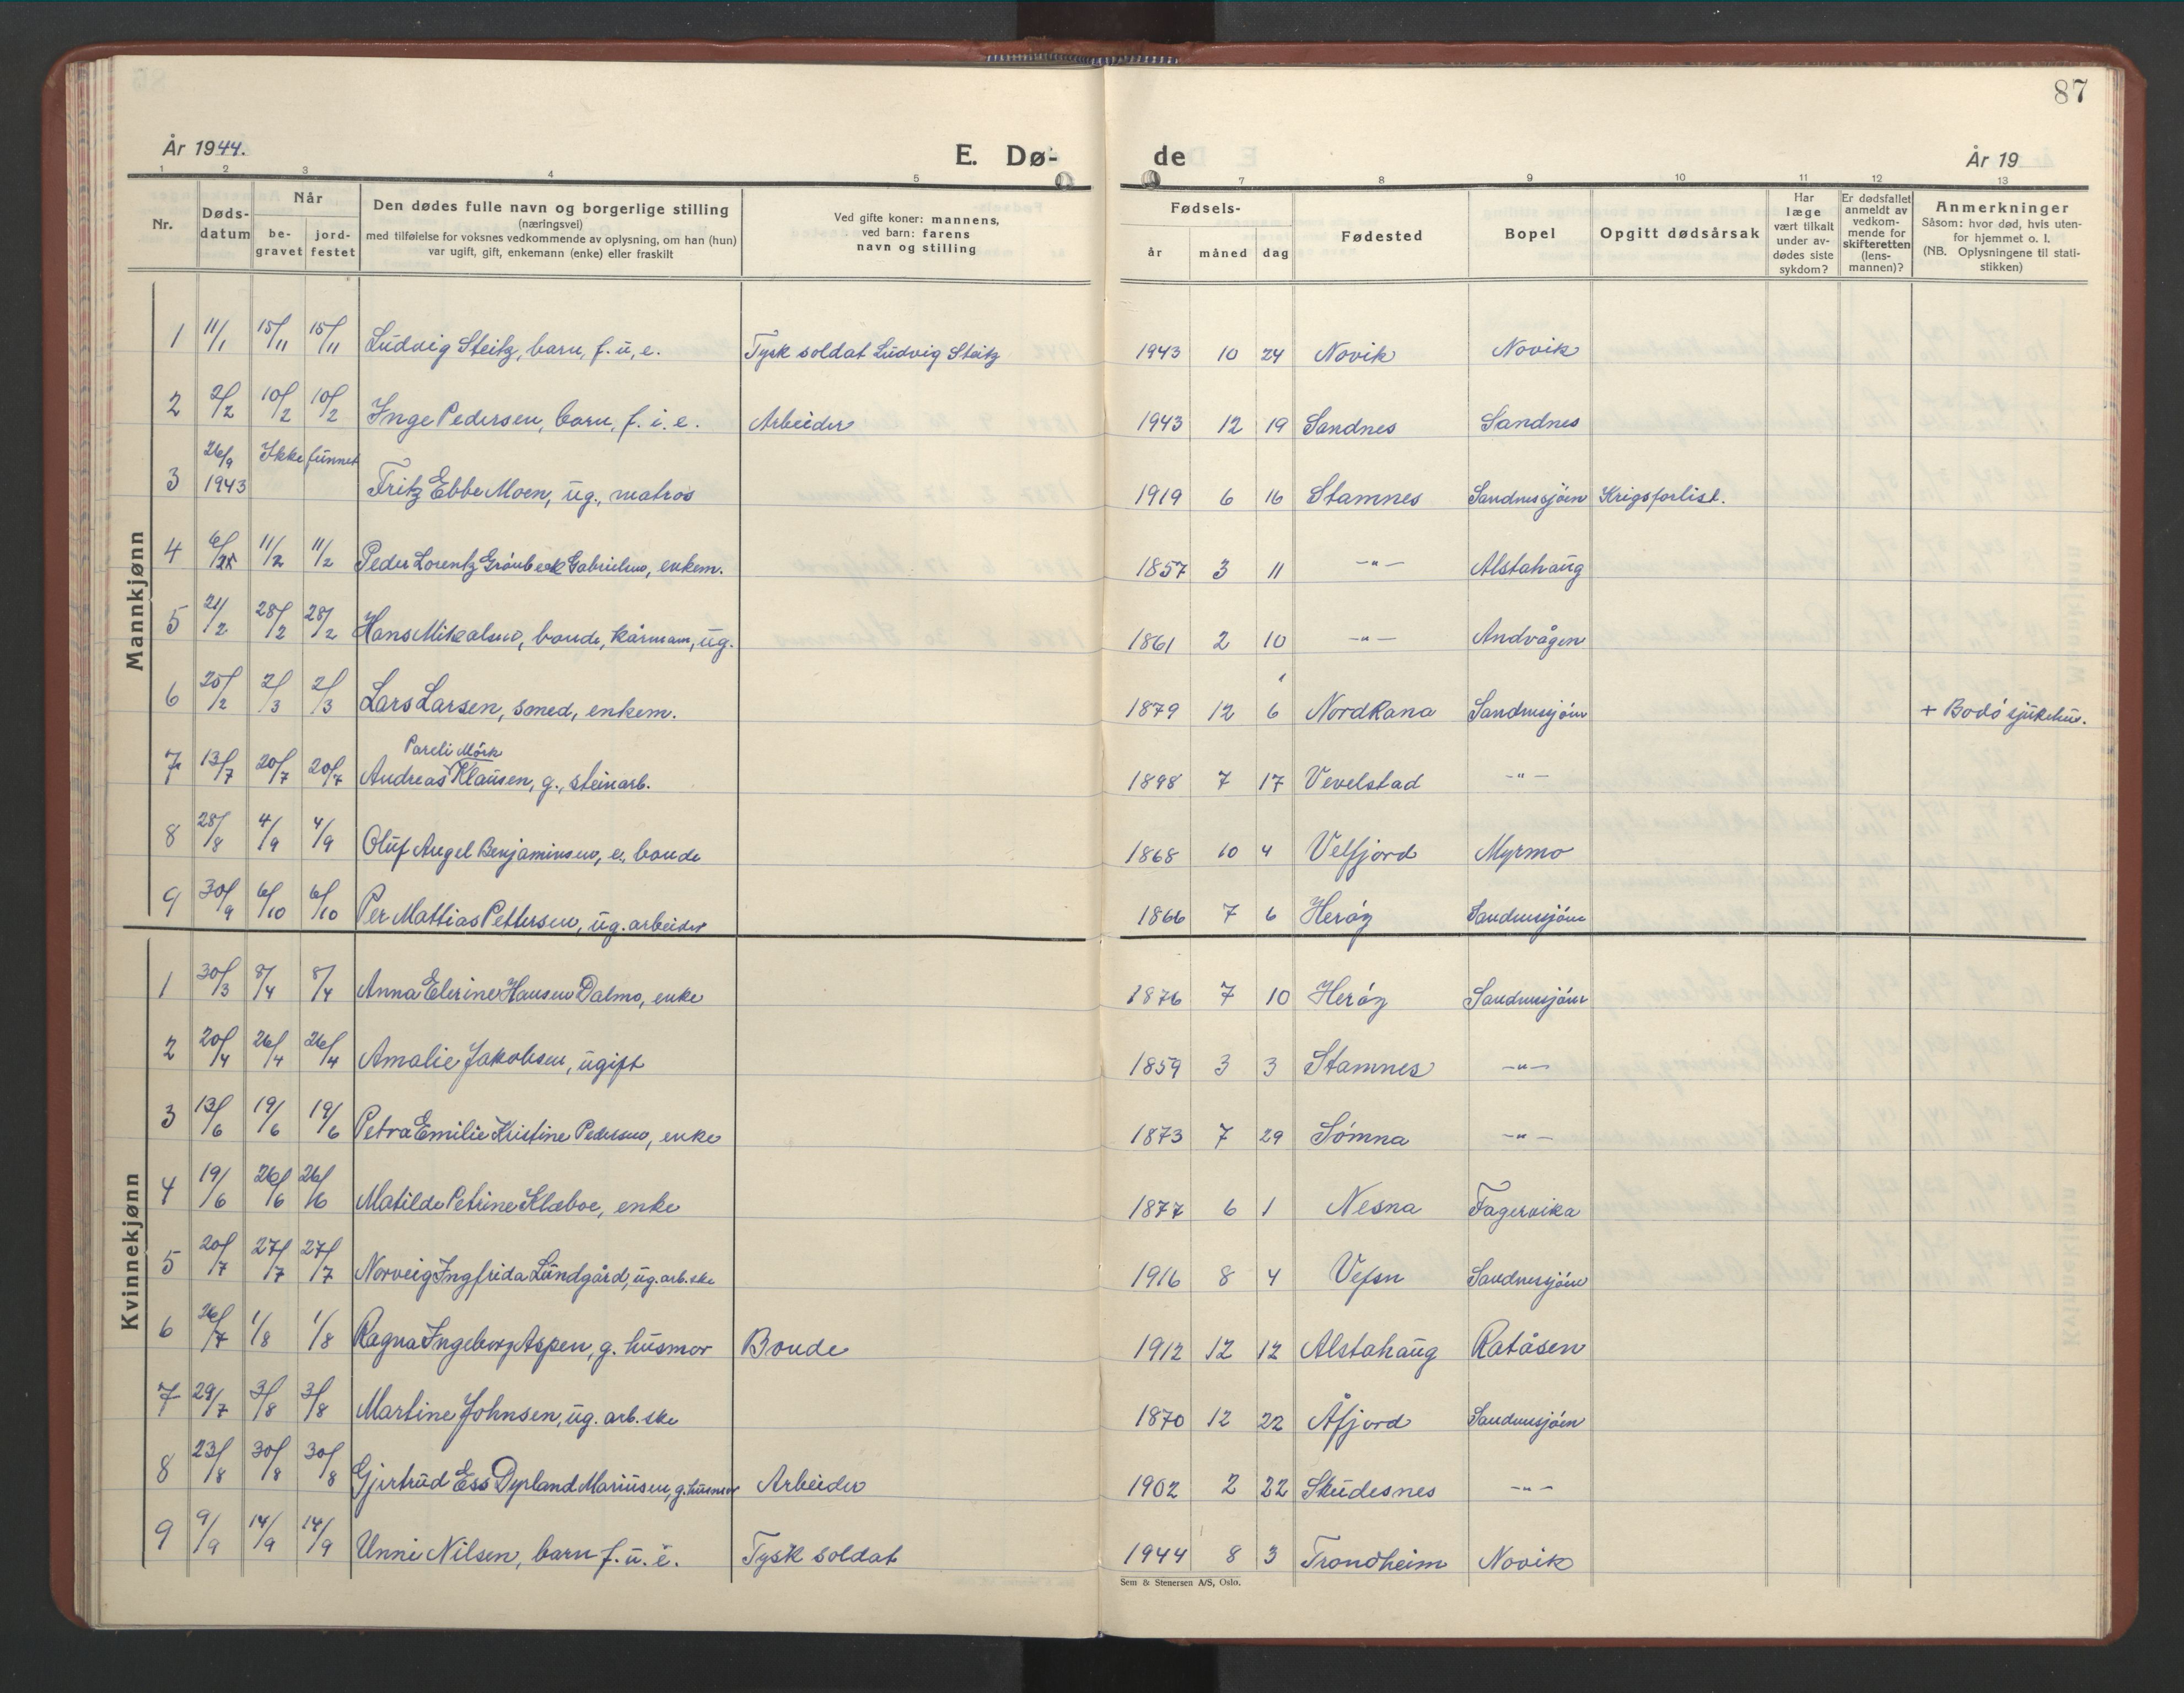 87
År 1944. E. Dø- de År 19
1 2 3 4 5 7 8 9 10 11 12 13
Nr. Døds-datum Når be-gravet jord-festet Den dødes fulle navn og borgerlige stilling (næringsvei) med tilføielse for voksnes vedkommende av oplysning, om han (hun) var ugift, gift, enkemann (enke) eller fraskilt Ved gifte koner: mannens, ved barn: farens navn og stilling Fødsels- år måned dag Fødested Bopel Opgitt dødsårsak Har læge vært tilkalt under av-dødes siste sykdom? Er dødsfallet anmeldt av vedkom-mende for skifteretten (lens-mannen)? Anmerkninger Såsom: hvor død, hvis uten-for hjemmet o. l. (NB. Oplysningene til stati-stikken)
Mannkjønn
1 11/1 15/11 15/11 Ludvig Steitz, barn, f. u, e. Tysk soldat Ludvig Steitz 1943 10 24 Novik Novik
2 2/2 10/2 10/2 Inge Pedersen, barn, f. i. e. Arbeider 1943 12 19 Sandnes Sandnes
3 26/9 1943 Ikke funnet Fritz Ebbe Moen, ug., matros 1919 6 16 Stamnes Sandnessjøen Krigsforlist.
4 11/2 11/2 Peder Lorentz Grønbeck Gabrielsen, enkem. 1857 3 11 -"- Alstahaug
5 21/2 28/2 28/2 Hans Mikalsen, bonde, kårmann, ug. 1861 2 10 -"- Andvågen
6 25/2 2/3 2/3 Lars Larsen, smed, enkem. 1879 12 6 Nord Rana Sandnessjøen + Bodø sjukehus.
7 13/7 20/7 20/7 Andreas Pareli Mørk Klausen, g., steinarb. 1898 7 17 Vevelstad -"-
8 28/8 4/9 4/9 Oluf Angel Benjaminsen, e., bonde 1868 10 4 Velfjord Myrmo
9 30/9 6/10 6/10 Per Mattias Pettersen, ug. arbeider 1866 7 6 Herøy Sandnessjøen
Kvinnekjønn
1 30/3 8/4 8/4 Anna Elerine Hansen Dalmo, enke 1876 7 10 Herøy Sandnessjøen
2 20/4 26/4 26/4 Amalie Jakobsen, ugift 1859 3 3 Stamnes -"-
3 13/6 19/6 19/6 Petra Emilie Kristine Pedersen, enke 1873 7 29 Sømna -"-
4 19/6 26/6 26/6 Matilde Petrine Klæboe, enke 1877 6 1 Nesna Fagervika
5 20/7 27/7 27/7 Norveig Ingfrida Lundgård, ug. arb.ske 1916 8 4 Vefsn Sandnessjøen
6 26/7 1/8 1/8 Ragna Ingeborg Aspen, g. husmor Bonde 1912 12 12 Alstahaug Ratåsen
7 29/7 3/8 3/8 Martine Johnsen, ug. arb. ske 1870 12 22 Åfjord Sandnessjøen
8 23/8 30/8 30/8 Gjertrud Ess Dyrland Mariusen, g. husmor Arbeider 1902 2 22 Skudesnes -"-
9 9/9 14/9 14/9 Unni Nilsen, barn f. u. e. Tysk soldat 1944 8 3 Trondheim Novik
Sem & Stenersen A/S, Oslo.